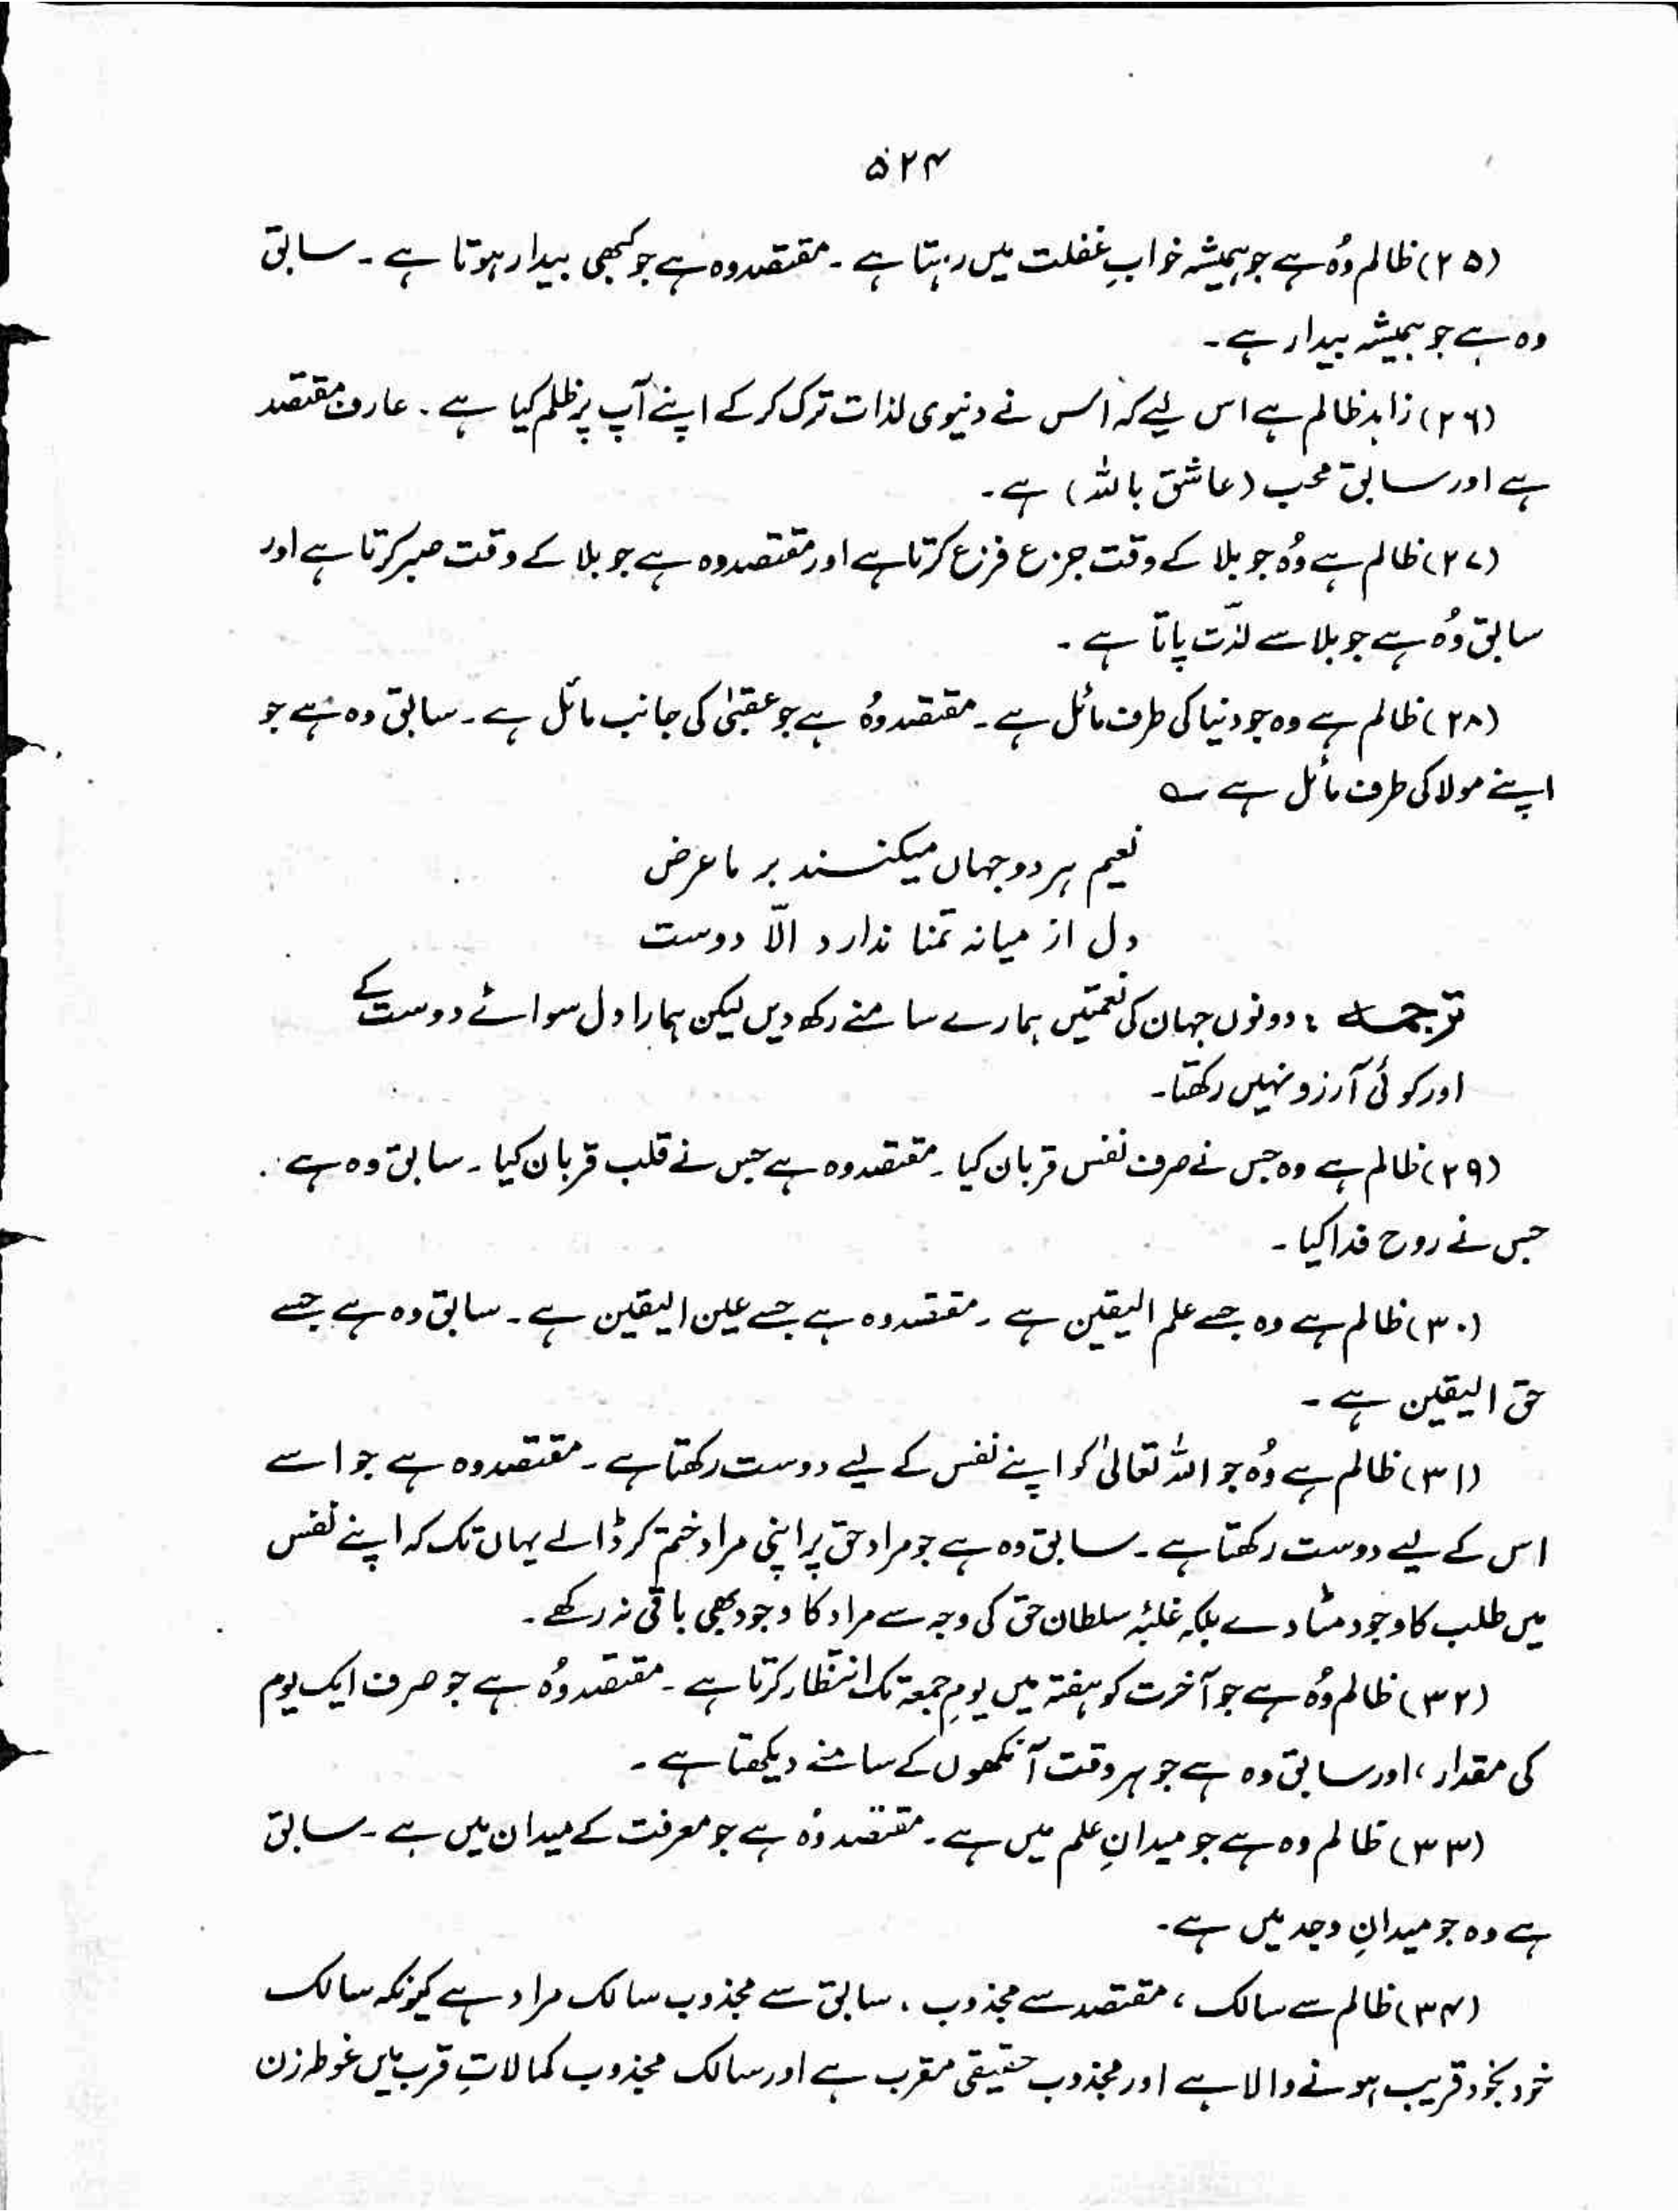 ۵۲۴
(۲۵) ظالم وُہ ہے جو ہمیشہ خوابِ غفلت میں رہتا ہے ۔ مقتصد وہ ہے جو کبھی بیدار ہوتا ہے ۔ سابق
وہ ہے جو ہمیشہ بیدار ہے ۔
(۲۶) زاہد ظالم ہے اس لیے کہ اُس نے دنیوی لذات ترک کر کے اپنے آپ پر ظلم کیا ہے ۔ عارف مقتصد
ہے اور سابق محب (عاشق باللہ) ہے ۔
(۲۷) ظالم ہے وُہ جو بلا کے وقت جزع فزع کرتا ہے اور مقتصد وہ ہے جو بلا کے وقت صبر کرتا ہے اور
سابق وُہ ہے جو بلا سے لذّت پاتا ہے ۔
(۲۸) ظالم ہے وہ جو دنیا کی طرف مائل ہے ۔ مقتصد وُہ ہے جو عقبیٰ کی جانب مائل ہے ۔ سابق وہ ہے جو
اپنے مولا کی طرف مائل ہے ؎
نعیم ہر دو جہاں میکنند بر ما عرض
دل از میانہ تمنا ندارد الّا دوست
ترجمہ : دونوں جہان کی نعمتیں ہمارے سامنے رکھ دیں لیکن ہمارا دل سوائے دوست کے
اور کوئی آرزو نہیں رکھتا ۔
(۲۹) ظالم ہے وہ جس نے صرف نفس قربان کیا ۔ مقتصد وہ ہے جس نے قلب قربان کیا ۔ سابق وہ ہے
جس نے روح فدا کیا ۔
(۳۰) ظالم ہے وہ جسے علم الیقین ہے ۔ مقتصد وہ ہے جسے عین الیقین ہے ۔ سابق وہ ہے جسے
حق الیقین ہے ۔
(۳۱) ظالم ہے وُہ جو اللہ تعالیٰ کو اپنے نفس کے لیے دوست رکھتا ہے ۔ مقتصد وہ ہے جو اسے
اس کے لیے دوست رکھتا ہے ۔ سابق وہ ہے جو مراد حق پر اپنی مراد ختم کر ڈالے یہاں تک کہ اپنے نفس
میں طلب کا وجود مٹا دے بلکہ غلبۂ سلطان حق کی وجہ سے مراد کا وجود بھی باقی نہ رکھے ۔
(۳۲) ظالم وُہ ہے جو آخرت کو ہفتہ میں یومِ جمعۃ تک انتظار کرتا ہے ۔ مقتصد وُہ ہے جو صرف ایک یوم
کی مقدار ، اور سابق وہ ہے جو ہر وقت آنکھوں کے سامنے دیکھتا ہے ۔
(۳۳) ظالم وہ ہے جو میدانِ علم میں ہے ۔ مقتصد وُہ ہے جو معرفت کے میدان میں ہے ۔ سابق
ہے وہ جو میدانِ وجد میں ہے ۔
(۳۴) ظالم سے سالک ، مقتصد سے مجذوب ، سابق سے مجذوب سالک مراد ہے کیونکہ سالک
خود بخود قریب ہونے والا ہے اور مجذوب حقیقی مقرب ہے اور سالک مجذوب کمالاتِ قرب میں غوطہ زن